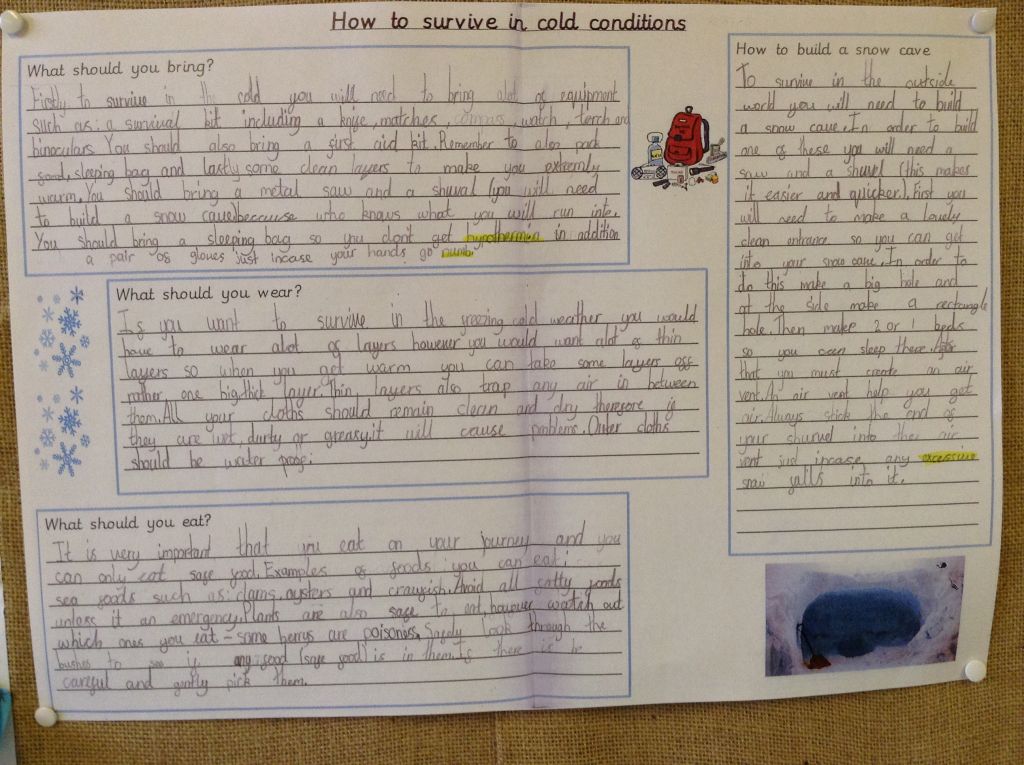 How to survive in cold conditions
What should you bring?
Firstly to survive in the cold you will need to bring alot of equipment
such as: a survival kit including a knife, matches, compass, watch, torch and
binoculars. You should also bring a first aid kit. Remember to also pack
food, sleeping bag and lastly some clean layers to make you extremly
warm. You should bring a metal saw and a shuval (you will need
to build a snow cave) because who knows what you will run into.
You should bring a sleeping bag so you don't get hypothermin in addition
a pair of gloves just incase your hands go numb.
What should you wear?
If you want to survive in the freezing cold weather you would
have to wear alot of layers however you would want alot of thin
layers so when you get warm you can take some layers off
rather one big, thick layer. Thin layers also trap any air in between
them. All your cloths should remain clean and dry therefore if
they are wet, durty or greasy, it will cause problems. Outer cloths
should be water proof.
What should you eat?
It is very important that you eat on your journey and you
can only eat safe food. Examples of foods you can eat:
sea foods such as: clams, oysters and crawfish. Avoid all fatty foods
unless it an emergency. Plants are also safe to eat, however watch out
which ones you eat - some berrys are poisoness. Safely look through the
bushes to see if any food (safe food) is in them. If there is be
careful and gently pick them.
How to build a snow cave
To survive in the outside
world you will need to build
a snow cave. In order to build
one of these you will need a
saw and a shuvel (this makes
it easier and quicker). First you
will need to make a lovely
clean entrance so you can get
into your snow cave. In order to
do this make a big hole and
at the side make a rectangle
hole. Then make 2 or 1 beds
so you can sleep there. After
that you must create an air
vent. An air vent help you get
air. Always stick the end of
your shuruel into the air
vent just incase any excessive
snow falls into it.